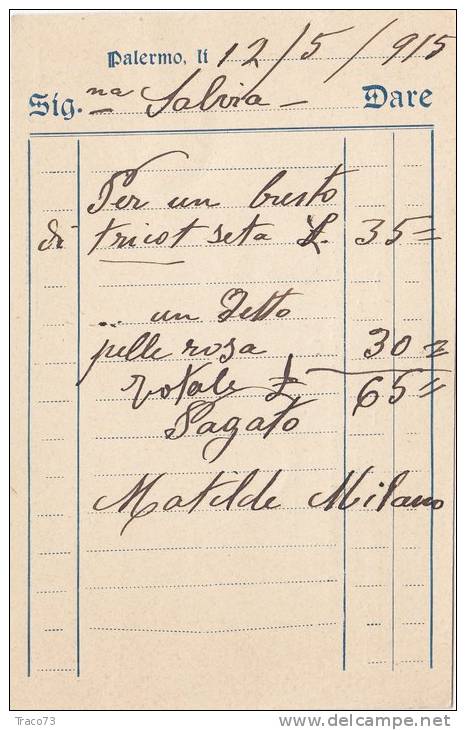 Palermo, li 12/5/915
Sig.na Salvia — Dare
Per un busto
di tricot seta £. 35=
„ un detto
pelle rosa 30=
Totale £ 65=
Pagato
Matilde Milano
Traco73
www.delcampe.net